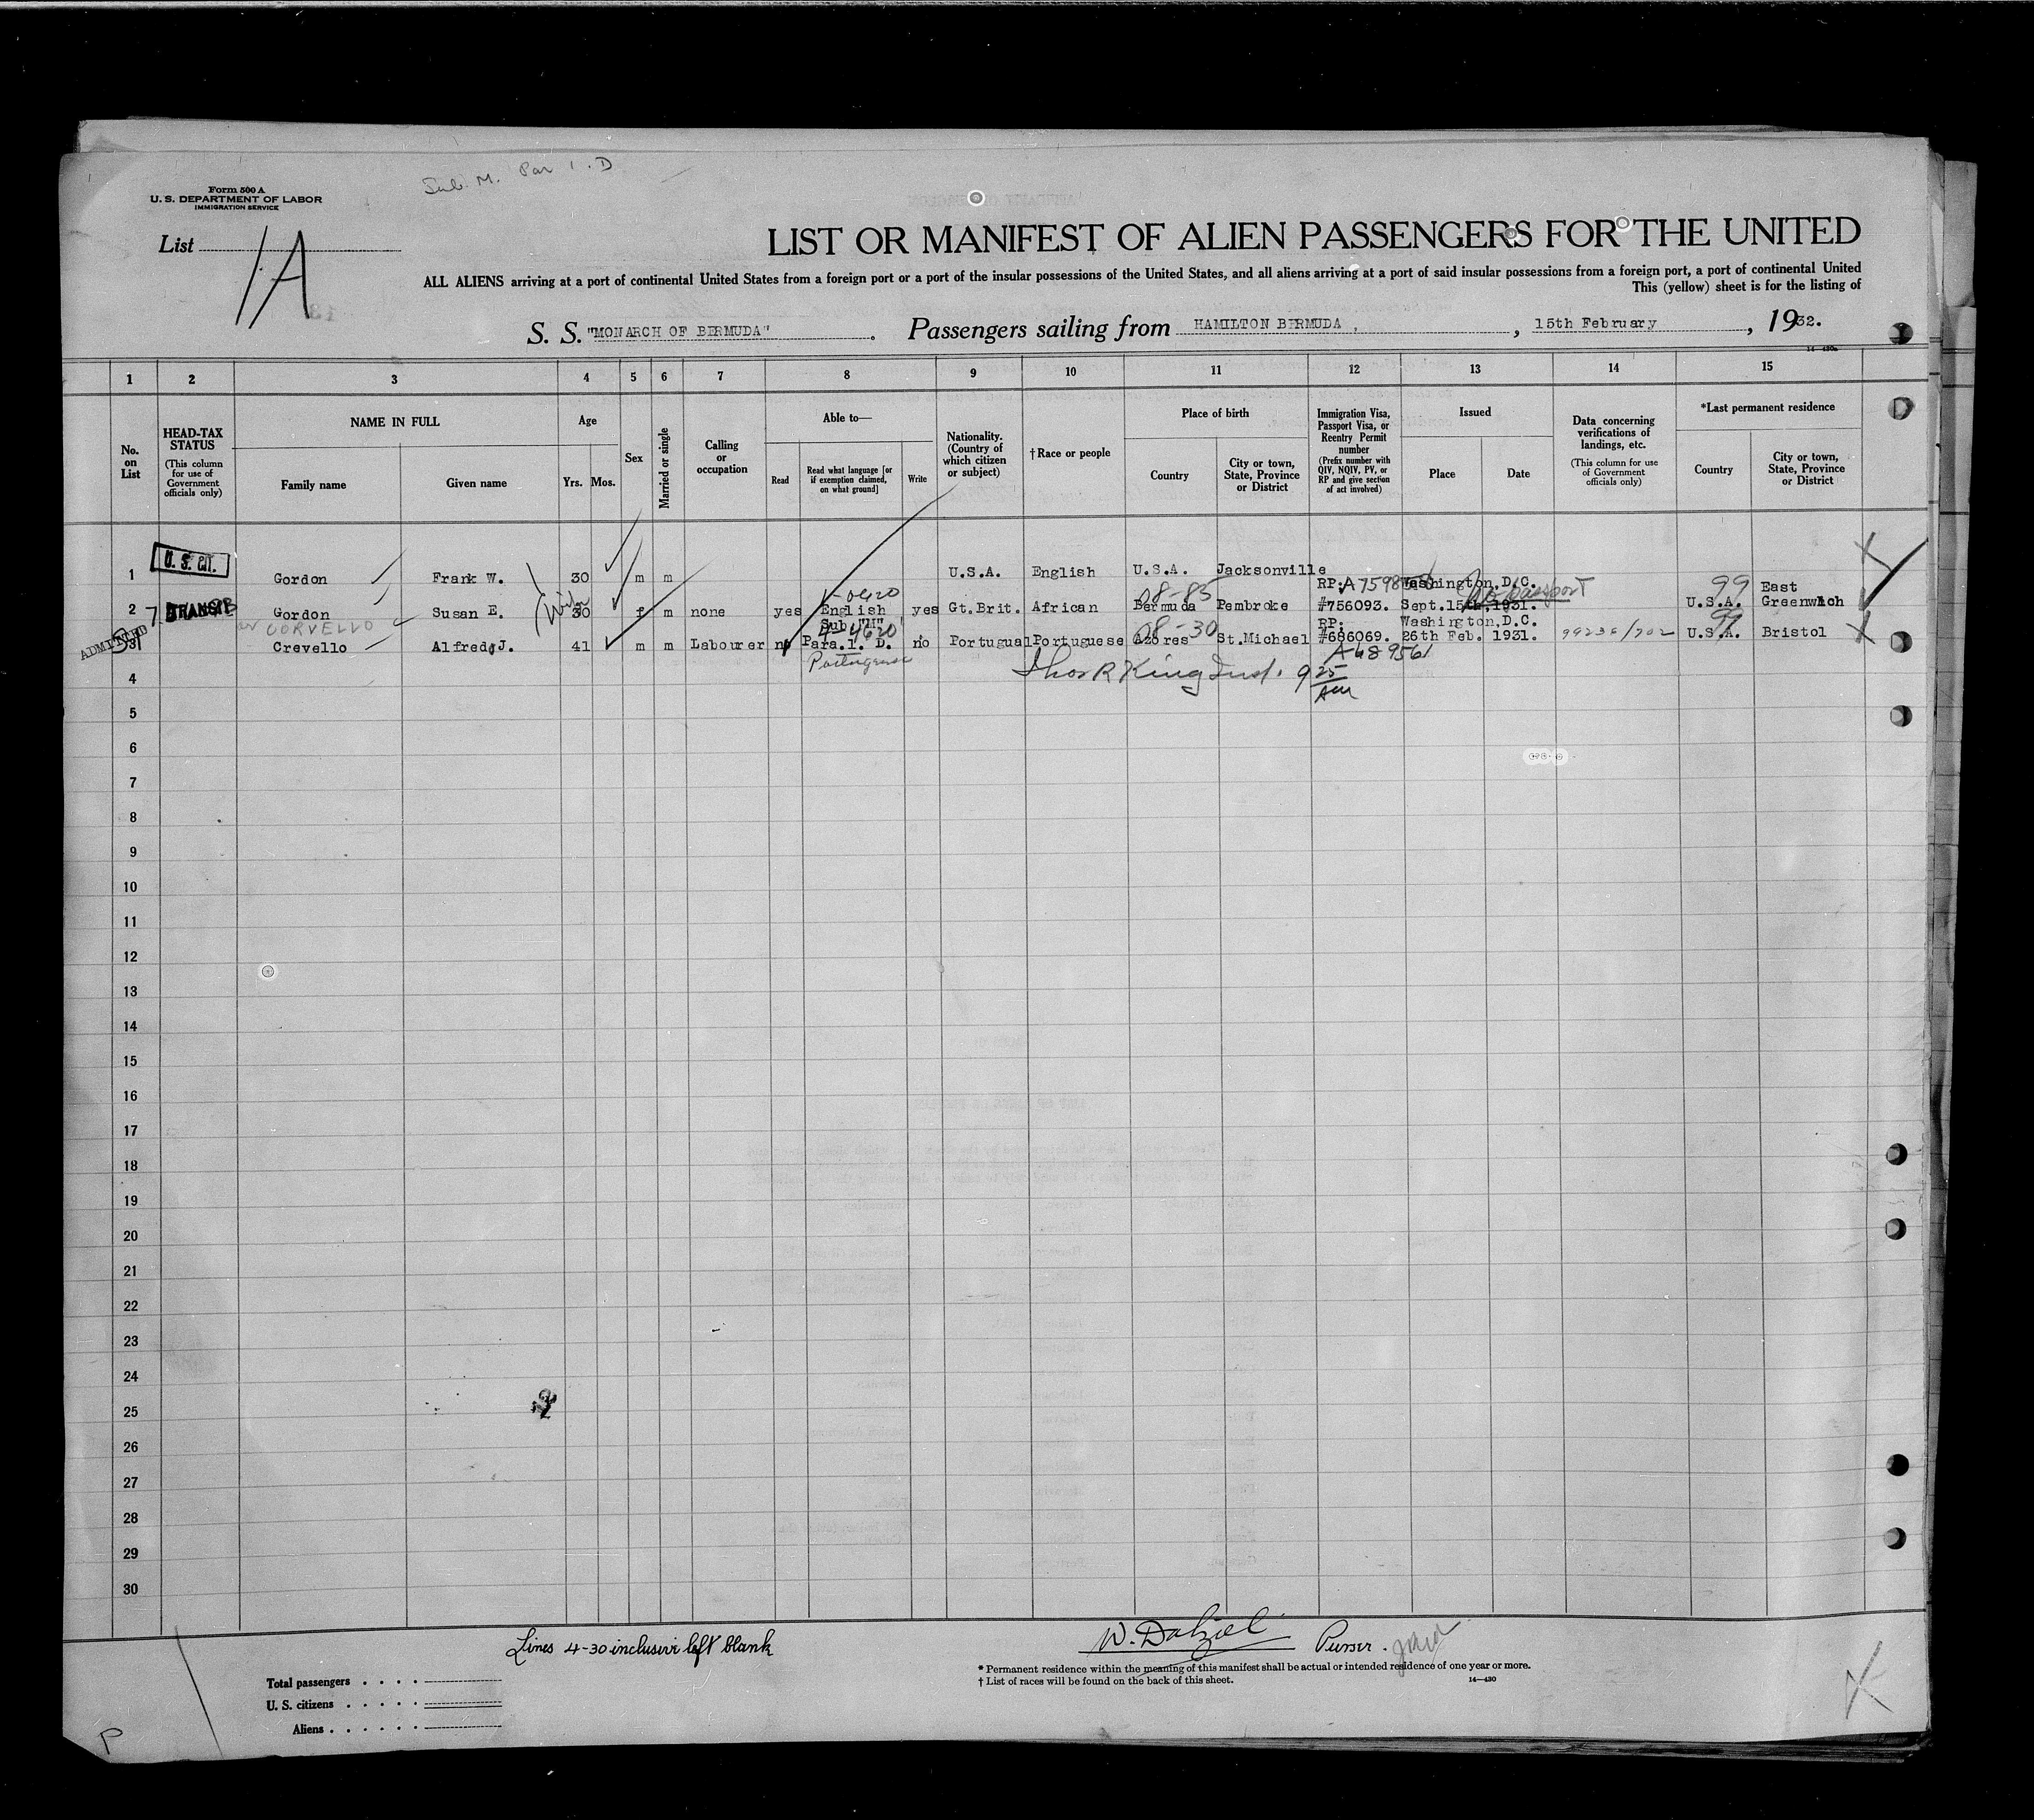 Sub. M. Par 1. D
Form 500 A
U. S. DEPARTMENT OF LABOR
IMMIGRATION SERVICE
List 1A
LIST OR MANIFEST OF ALIEN PASSENGERS FOR THE UNITED
ALL ALIENS arriving at a port of continental United States from a foreign port or a port of the insular possessions of the United States, and all aliens arriving at a port of said insular possessions from a foreign port, a port of continental United
This (yellow) sheet is for the listing of
S. S. "MONARCH OF BERMUDA". Passengers sailing from HAMILTON BERMUDA , , 15th February , 1932.
14—430a
1 2 3 4 5 6 7 8 9 10 11 12 13 14 15
No. on List
HEAD-TAX STATUS
(This column for use of Government officials only)
NAME IN FULL
Family name
Given name
Age
Yrs.
Mos.
Sex
Married or single
Calling or occupation
Able to—
Read
Read what language [or if exemption claimed, on what ground]
Write
Nationality. (Country of which citizen or subject)
†Race or people
Place of birth
Country
City or town, State, Province or District
Immigration Visa, Passport Visa, or Reentry Permit number
(Prefix number with QIV, NQIV, PV, or RP and give section of act involved)
Issued
Place
Date
Data concerning verifications of landings, etc.
(This column for use of Government officials only)
*Last permanent residence
Country
City or town, State, Province or District
1 U. S. CIT. Gordon Frank W. 30 m m U.S.A. English U.S.A. Jacksonville
RP: Washington,D.C. 99 East
2 TRANSIT Gordon Susan E. wife 30 f m none yes English yes Gt.Brit. African 08-83 Bermuda Pembroke #756093. Sept.15th,1931. U.S.A. Greenwich
or CORVELLO Sub "M" RP: Washington,D.C. 99
ADMITTED 3 Crevello Alfred J. 41 m m Labourer no Para.1. D. no Portugual Portuguese 08-30 Azores St.Michael #686069. 26th Feb. 1931. U.S.A. Bristol
Portuguese A689561
4 Thos R King Insp. 9 25 AM
5
6
7
8
9
10
11
12
13
14
15
16
17
18
19
20
21
22
23
24
25
26
27
28
29
30
Lines 4-30 inclusive left blank
W. Dalziel Purser.
* Permanent residence within the meaning of this manifest shall be actual or intended residence of one year or more.
† List of races will be found on the back of this sheet.
14—430
Total passengers . . . .
U. S. citizens . . . . .
Aliens . . . . . .
P